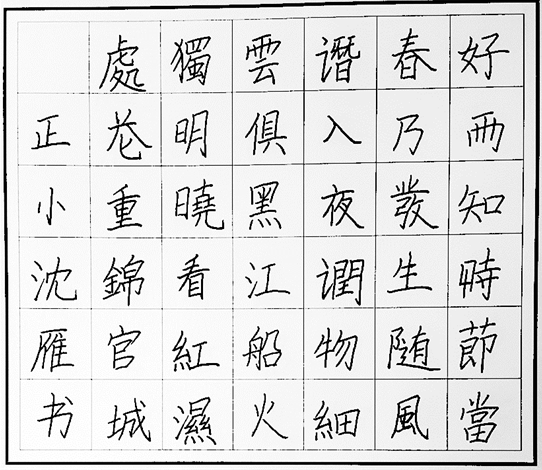 好雨知時節當
春乃發生随風
潛入夜潤物細
雲俱黑江船火
獨明曉看紅濕
處花重錦官城
正小沈雁书